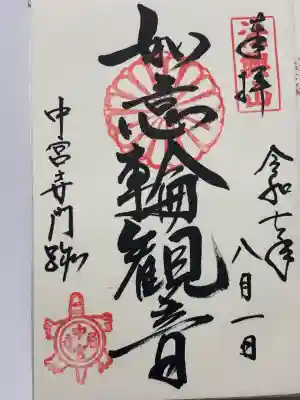 奉拝
令和七年
八月一日
如意輪観音
中宮寺門跡
中宮